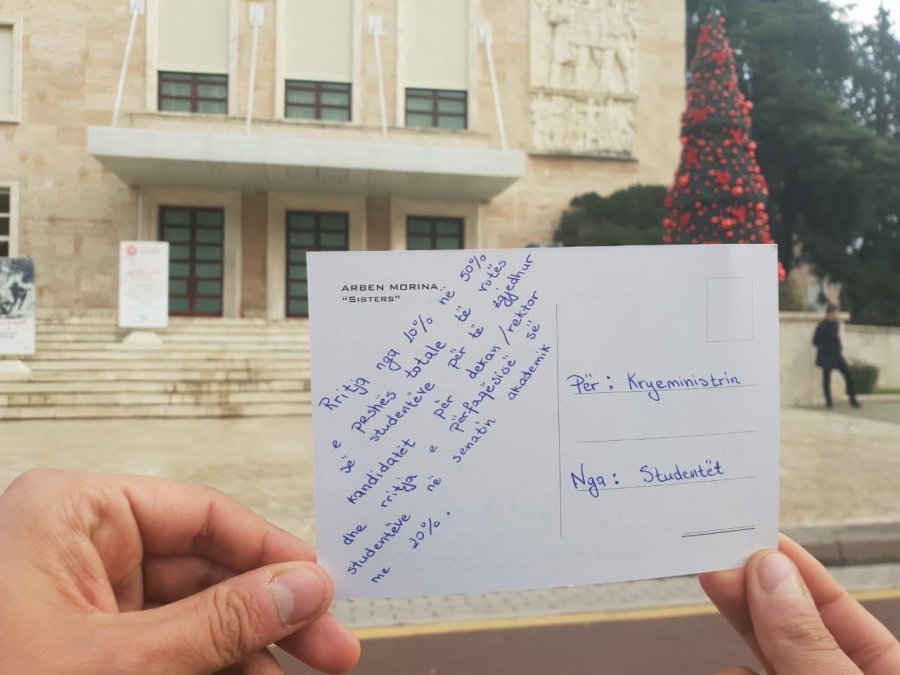 ARBEN MORINA
"Sisters"
Rritja nga 10% në 50%
e peshës totale të votës
së studentëve për të zgjedhur
kandidatët për dekan/rektor
dhe rritja e përfaqësisë së
studentëve në senatin akademik
me 20%.
Për: Kryeministrin
Nga: Studentët